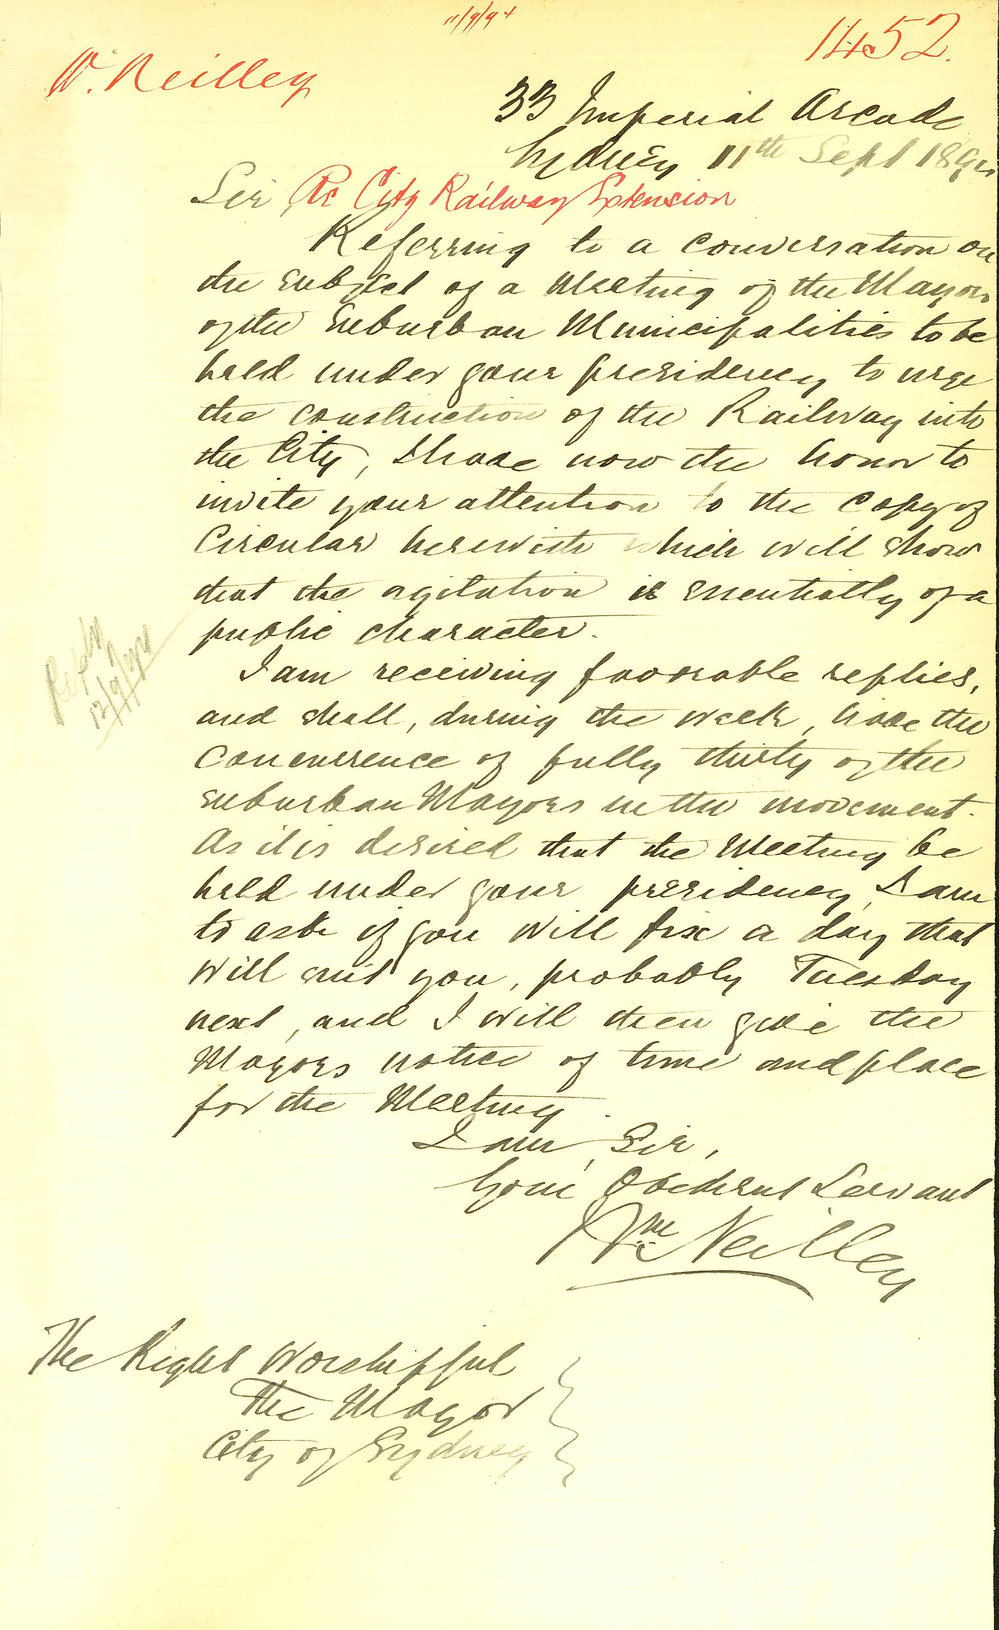 11/9/94
1452.
W. Neilley
33 Imperial Arcade
Sydney 11th Sept 1894
Sir Re City Railway Extension
Referring to a conversation on
the subject of a Meeting of the Mayors
of the Suburban Municipalities to be
held under your presidency to urge
the construction of the Railway into
the City, I have now the honor to
invite your attention to the Copy of
Circular herewith which will show
that the agitation is essentially of a
public character.
Reply
12/9/94
I am receiving favorable replies,
and shall, during the week, have the
concurrence of fully thirty of the
Suburban Mayors in the movement.
As it is desired that the Meeting be
held under your presidency, I am
to ask if you will fix a day that
will suit you, probably Tuesday
next, and I will then give the
Mayors notice of time and place
for the Meeting.
I am, Sir,
Your Obedient Servant
Wm Neilley
The Right Worshipful
The Mayor
City of Sydney